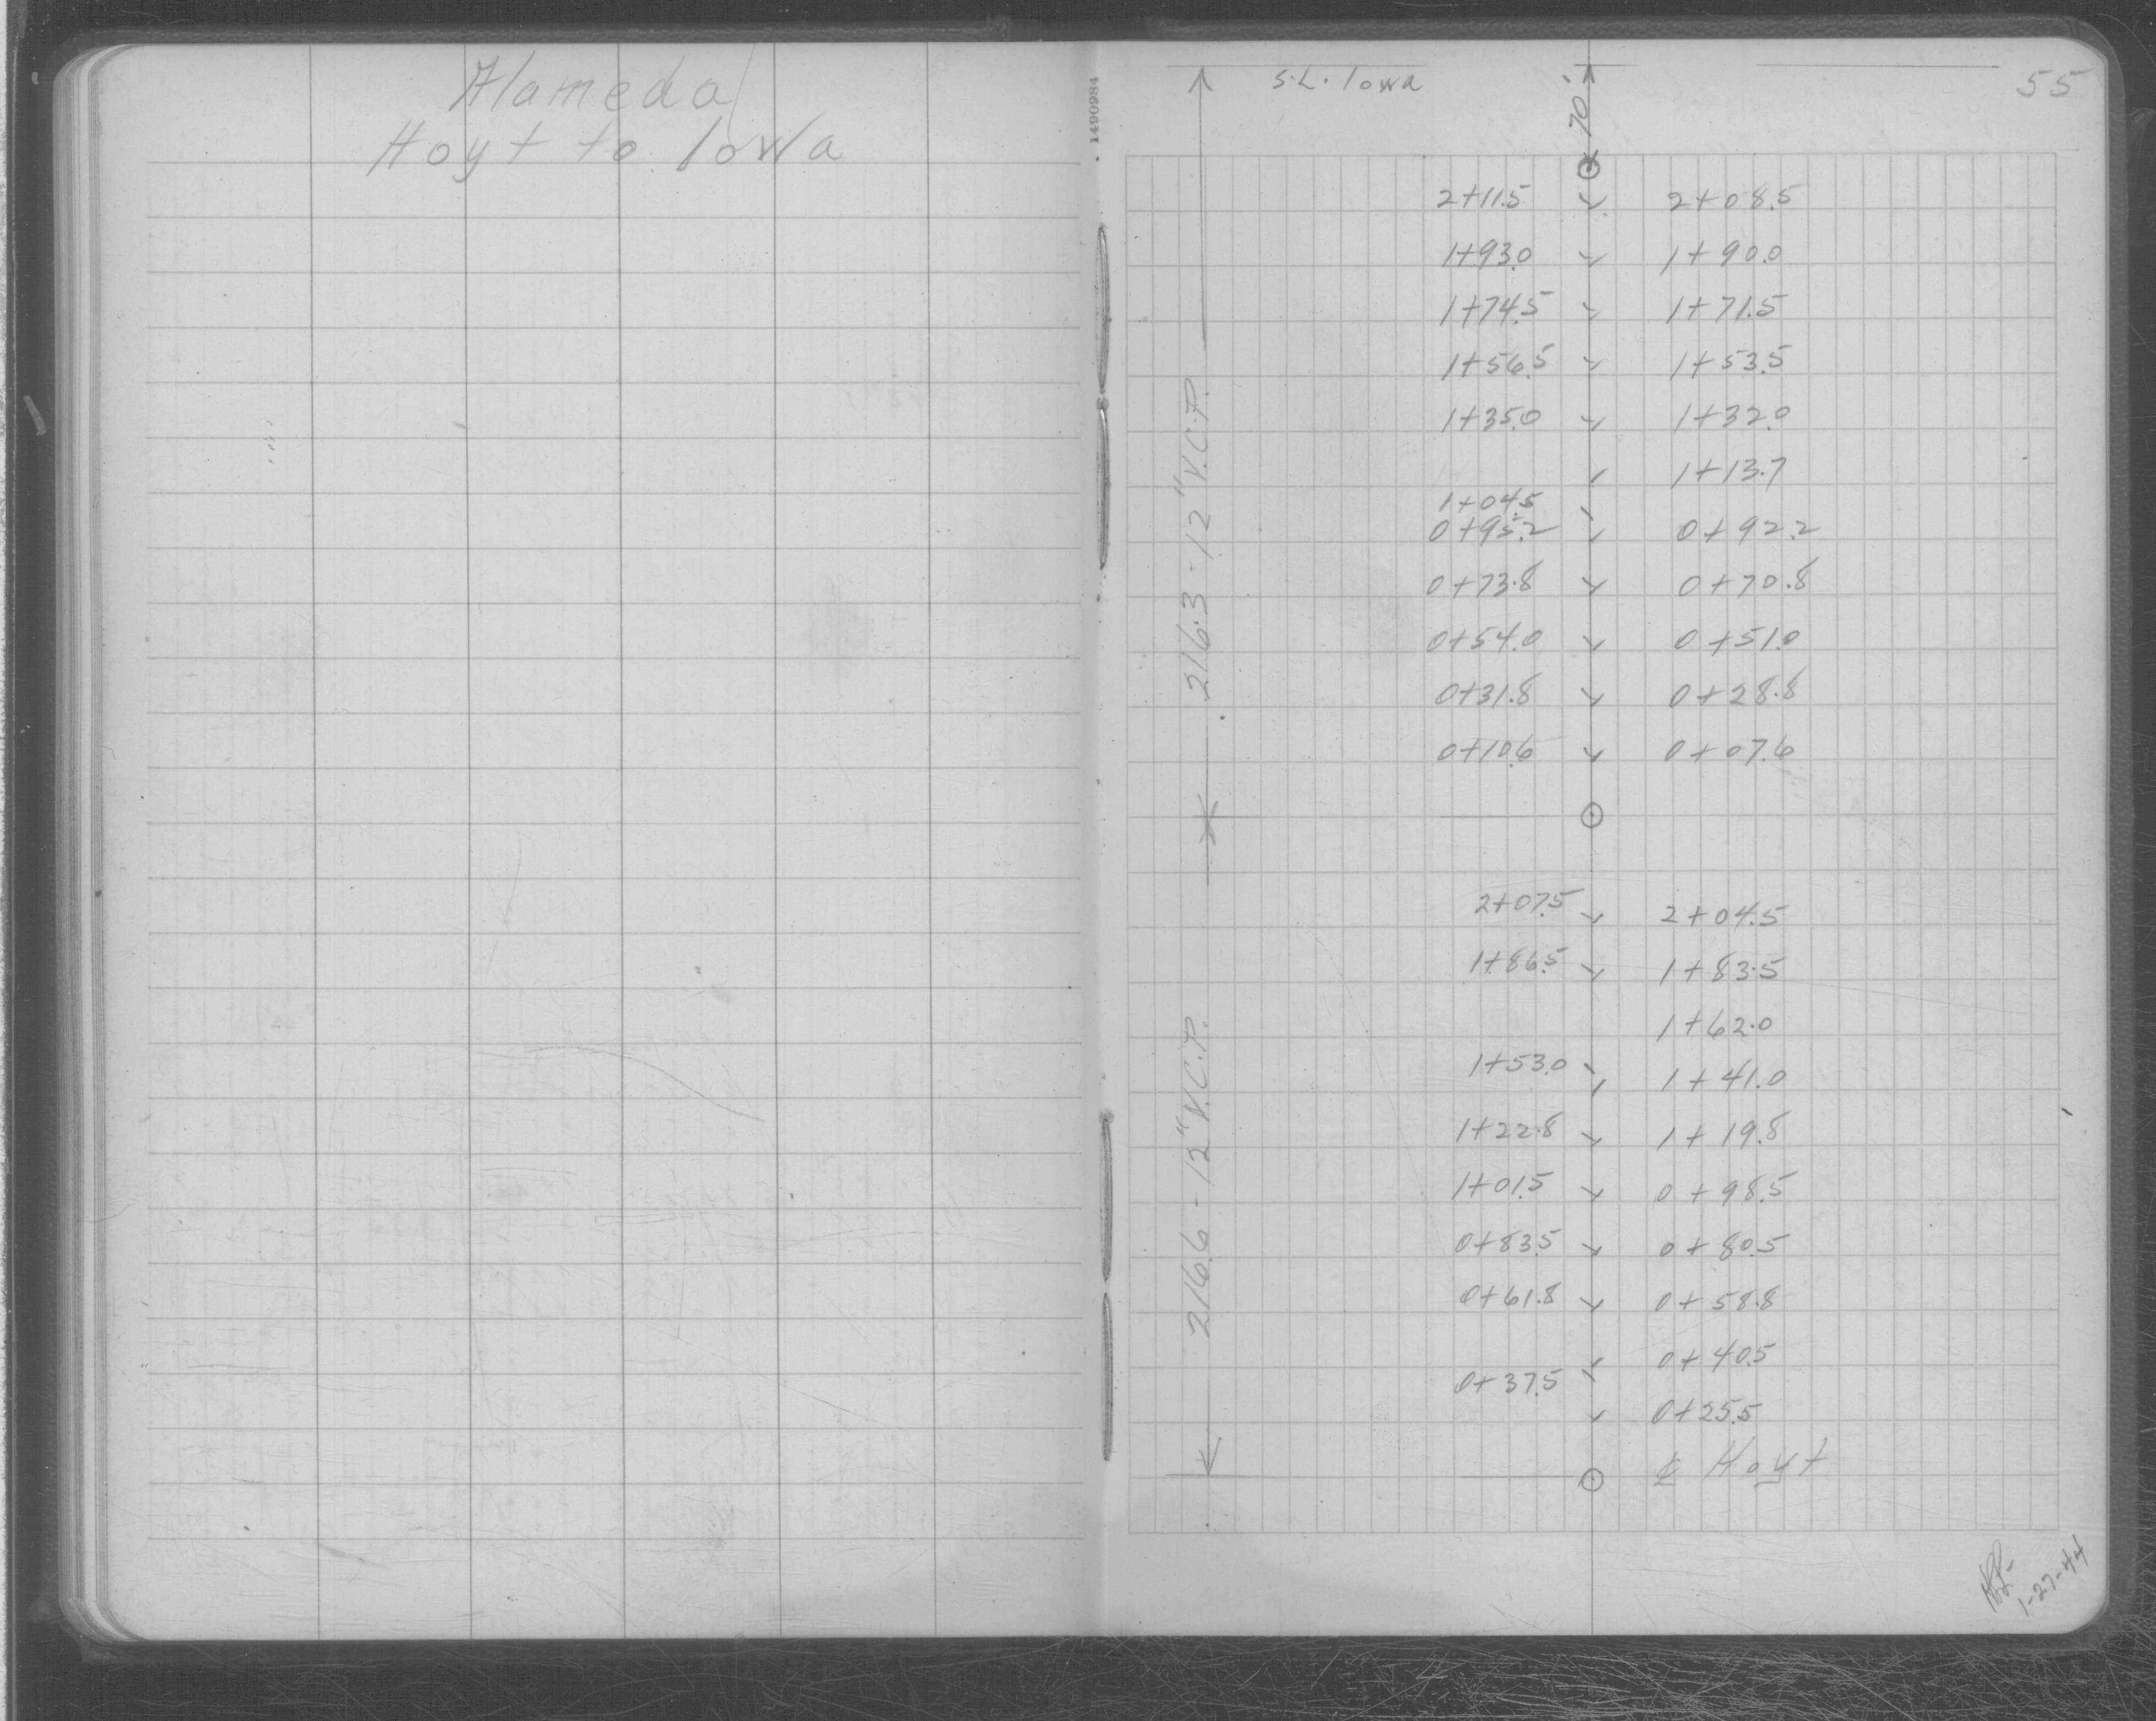 Alameda
Hoyt to Iowa
1490984
55
S.L. Iowa
70'
2+11.5 2+08.5
1+93.0 1+90.0
1+74.5 1+71.5
1+56.5 1+53.5
1+35.0 1+32.0
1+13.7
1+04.5
0+95.2 0+92.2
0+73.8 0+70.8
0+54.0 0+51.0
0+31.8 0+28.8
0+10.6 0+07.6
216.3 - 12" V.C.P.
2+07.5 2+04.5
1+86.5 1+83.5
1+62.0
1+53.0
1+41.0
1+22.8 1+19.8
1+01.5 0+98.5
0+83.5 0+80.5
0+61.8 0+58.8
0+40.5
0+37.5
0+25.5
℄ Hoyt
216.6 - 12" V.C.P.
1-27-44